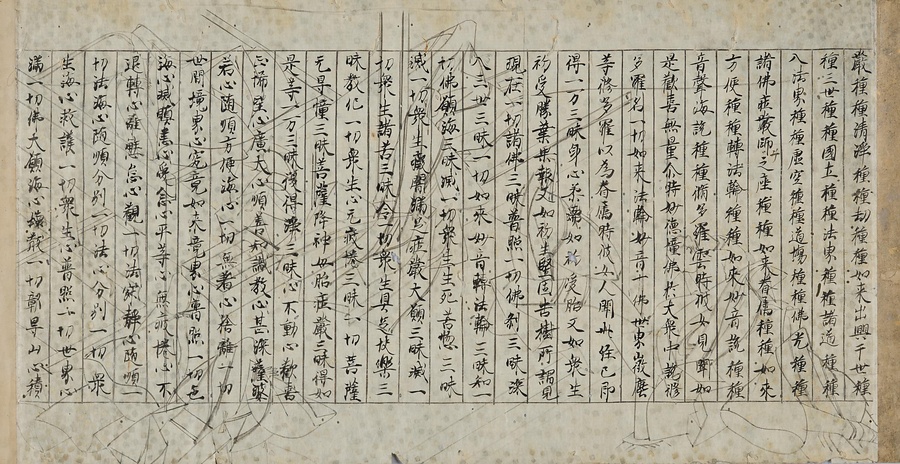 嚴種種清淨種種劫種種如來出興于世種
種三世種種國土種種法界種種諸道種種
入法界種種虛空種種道場種種佛光種種
諸佛莊嚴師子之座種種如來眷屬種種如來
方便種種轉法輪種種如來妙音說種種
音聲海說種種脩多羅雲時彼女見聞如
是歡喜無量爾時妙德幢佛於大衆中說脩
多羅名一切如來法輪妙音十佛世界微塵
等脩多羅以為眷屬時彼女人聞此經已即
得一万三昧身心柔濡如 受胎又如衆生
初受勝業果報又如初生堅固吉樹所謂見
現在一切諸佛三昧普照一切佛刹三昧深
入三世三昧一切如來妙音轉法輪三昧知一
切佛願海三昧滅一切衆生生死苦惱三昧
滅一切衆生癡闇 足莊嚴大願三昧滅一
切衆生諸苦三昧令一切衆生具足快樂三
昧教化一切衆生心无疲惓三昧一切菩薩
元 幢三昧菩薩降神 胎莊嚴三昧得如
是等一万三昧復得淨三昧心不動心歡喜
心 心廣大心順善知識教心甚深薩婆
若心隨順方便海心一切無著心捨離一切
世間境界心究竟如來境界心普照一切色
海心滅瞋恚心 心平等心無疲惓心不
退轉心離懈怠心觀一切法寂靜心隨順一
切法海心隨順分別一切法心分別一切衆
生海心救護一切衆生心普照一切世界心
滿一切佛大願海心壞散一切鄣导山心積